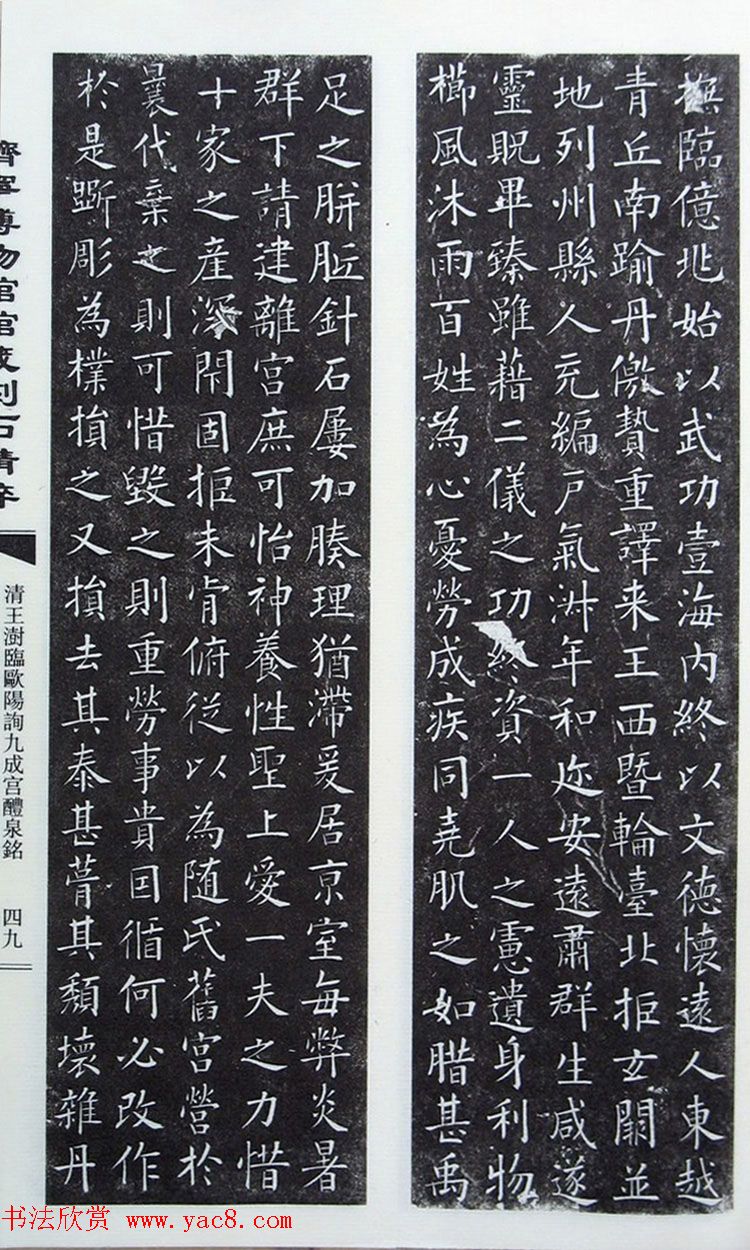 撫臨億兆始以武功壹海內終以文德懷遠人東越
青丘南踰丹僥贄重譯来王西暨輪臺北拒玄闕並
地列州縣人充編戶氣淑年和迩安遠肅群生咸遂
靈貺畢臻雖藉二儀之功終資一人之慮遺身利物
櫛風沐雨百姓為心憂勞成疾同堯肌之如腊甚禹
足之腁胝針石屢加腠理猶滯爰居京室每弊炎暑
群下請建離宮庶可怡神養性聖上愛一夫之力惜
十家之產深閇固拒未肯俯從以為随氏舊宮營於
曩代棄之則可惜毀之則重勞事貴因循何必改作
於是斲彫為樸損之又損去其泰甚葺其頹壞雜丹
濟寧博物館館藏刻石精萃
清王澍臨歐陽詢九成宮醴泉銘 四九
书法欣赏 www.yac8.com